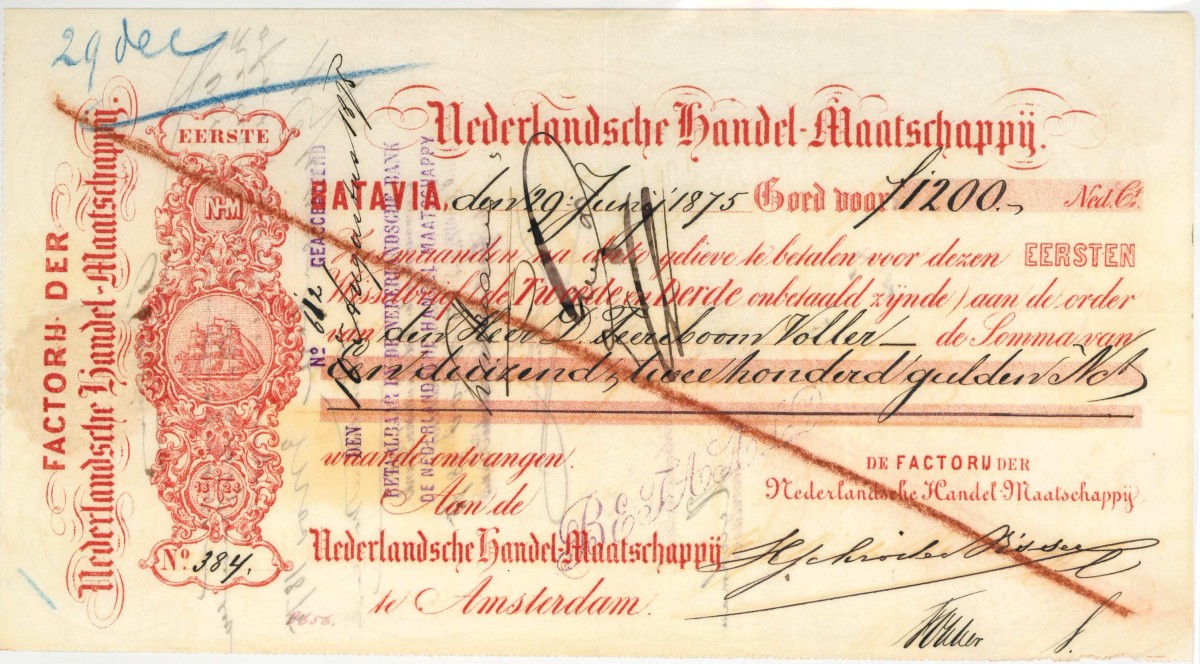 29 dec
FACTORIJ DER
Nederlandsche Handel-Maatschappij.
EERSTE
NHM
1824
No. 384.
Nederlandsche Handel-Maatschappij.
BATAVIA, den 29 Junij 1875 Goed voor f1200.- Ned. Ct.
maanden na dato gelieve te betalen voor dezen EERSTEN
Wisselbrief (de Tweede en Derde onbetaald zijnde) aan de order
van den Heer D. Teereboom Voller de Somma van
Een duizend, twee honderd gulden N Ct
waarde ontvangen.
Aan de
Nederlandsche Handel-Maatschappij
te Amsterdam.
DE FACTORIJ DER
Nederlandsche Handel-Maatschappij
No 612 GEACCEPTEERD
DEN 18 Augustus 1875
BETAALBAAR BIJ DE NEDERLANDSCHE BANK
DE NEDERLANDSCHE HANDEL-MAATSCHAPPY